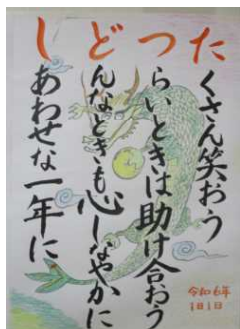 たくさん笑おう
つらいときは助け合おう
どんなときも心しなやかに
しあわせな一年に
令和6年
1月1日